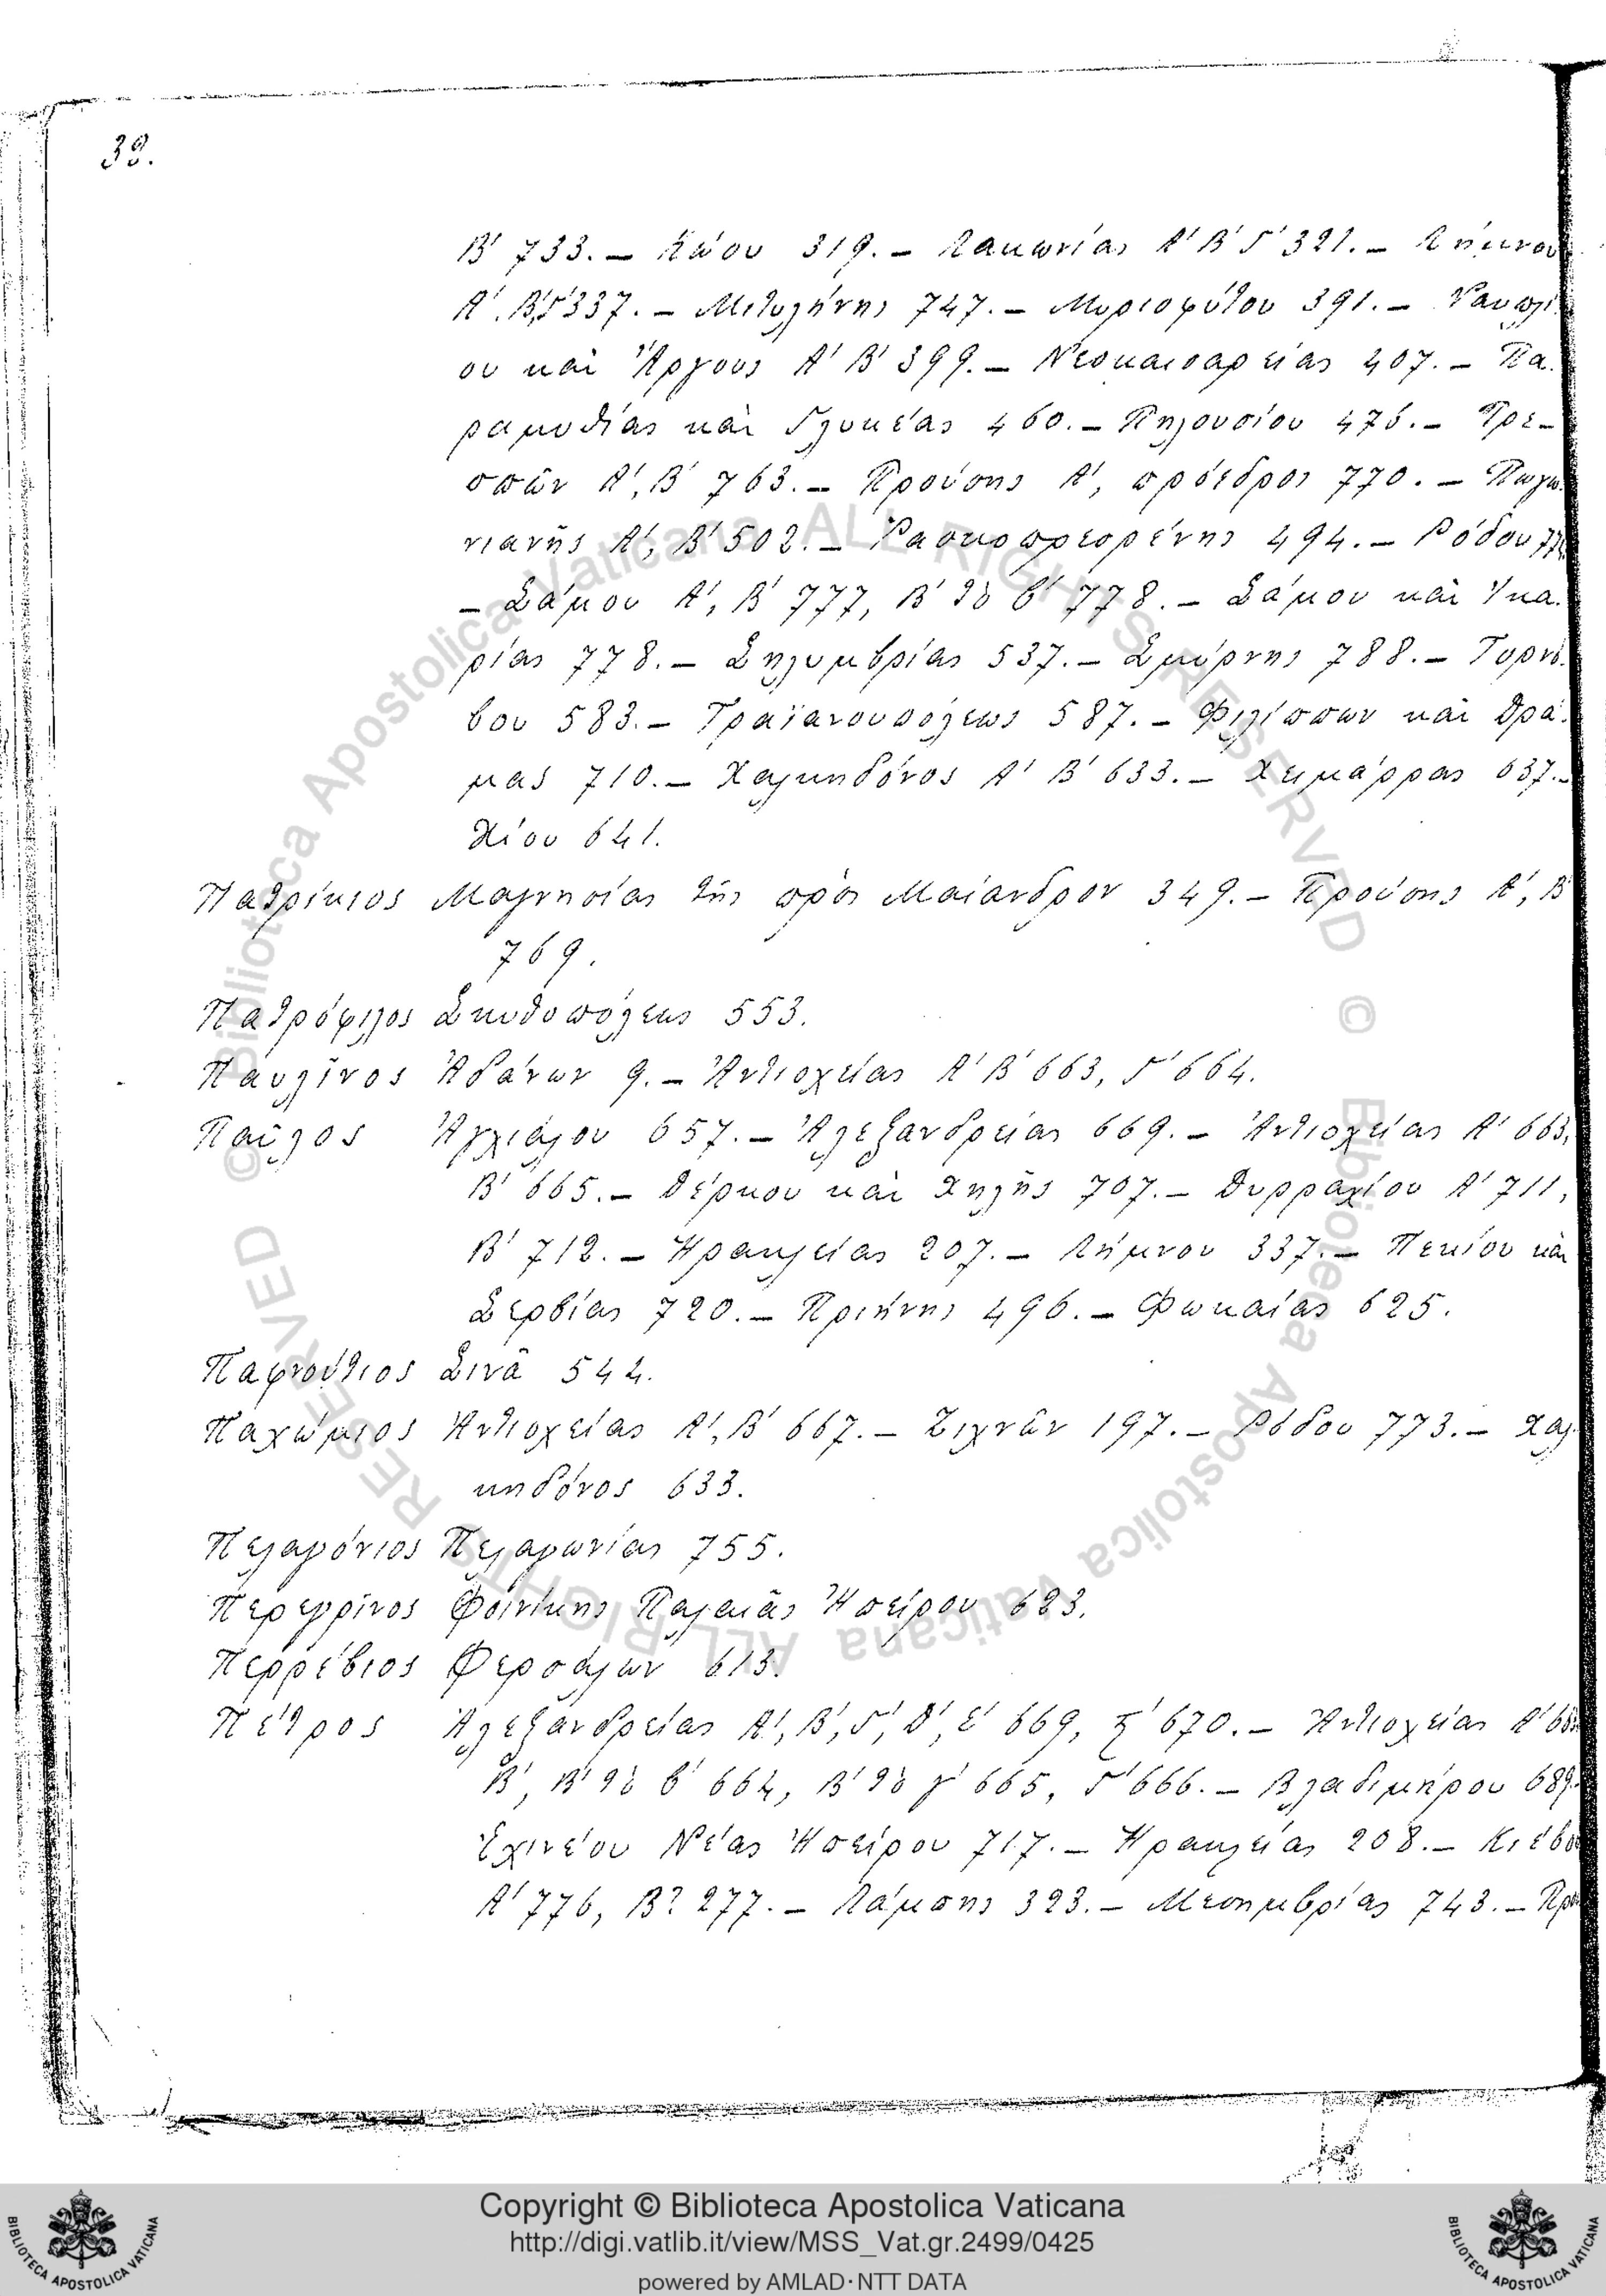 38.
Β' 733. – Κώου 319. – Λακωνίας Α' Β' Γ' 321. – Λήμνου
Α', Β', Γ' 337. – Μιτυλήνης 747. – Μυριοφύτου 391. – Ναυπλί
ου καὶ Ἄργους Α' Β' 399. – Νεοκαισαρείας 407. – Πα.
ραμυθίας καὶ Γλυκέας 460. – Πηλουσίου 476. – Πρε–
σπῶν Α', Β' 763. – Προύσης Α', πρόεδρος 770. – Πωγω
νιανῆς Α', Β' 502. – Ρασκοπρεσρένης 494. – Ρόδου
– Σάμου Α', Β' 777, Β' τὸ β' 778. – Σάμου καὶ Ἰκα.
ρίας 778. – Σηλυμβρίας 537. – Σμύρνης 788. – Τορνό.
βου 583. – Τραϊανουπόλεως 587. – Φιλίππων καὶ Δρά.
μας 710. – Χαλκηδόνος Α' Β' 633. – Χειμάρρας 637. –
Χίου 641.
Πατρίκιος Μαγνησίας τῆς πρὸς Μαίανδρον 349. – Προύσης Α', Β'
769.
Πατρόφιλος Σκυθοπόλεως 553.
Παυλῖνος Ἀδάνων 9. – Ἀντιοχείας Α' Β' 663, Γ' 664.
Παῦλος Ἀγχιάλου 657. – Ἀλεξανδρείας 669. – Ἀντιοχείας Α' 663,
Β' 665. – Δέρκου καὶ Χηλῆς 707. – Δυρραχίου Α' 711,
Β' 712. – Ἡρακλείας 207. – Λήμνου 337. – Πεκίου καὶ
Σερβίας 720. – Πριήνης 496. – Φωκαίας 625.
Παφνούτιος Σινᾶ 544.
Παχώμιος Ἀντιοχείας Α', Β' 667. – Ζιχνῶν 197. – Ρόδου 773. – Χαλ
κηδόνος 633.
Πελαγόνιος Πελαγωνίας 755.
Περεγρῖνος Φοινίκης Παλαιᾶς Ἠπείρου 623.
Περρέβιος Φερσάλων 613.
Πέτρος Ἀλεξανδρείας Α', Β', Γ', Δ', Ε' 669, Ϛ' 670. – Ἀντιοχείας Α'
Β', Β' τὸ β' 664, Β' τὸ γ' 665, Γ' 666. – Βλαδιμήρου 689.
Ἐχινέου Νέας Ἠπείρου 717. – Ἡρακλείας 208. – Κιέβου
Α' 776, Β? 277. – Λάμπης 323. – Μεσημβρίας 743. – Πρ
Copyright © Biblioteca Apostolica Vaticana
http://digi.vatlib.it/view/MSS_Vat.gr.2499/0425
powered by AMLAD·NTT DATA
© Biblioteca Apostolica Vaticana ALL RIGHTS RESERVED
© Biblioteca Apostolica Vaticana ALL RIGHTS RESERVED
BIBLIOTECA APOSTOLICA VATICANA
BIBLIOTECA APOSTOLICA VATICANA